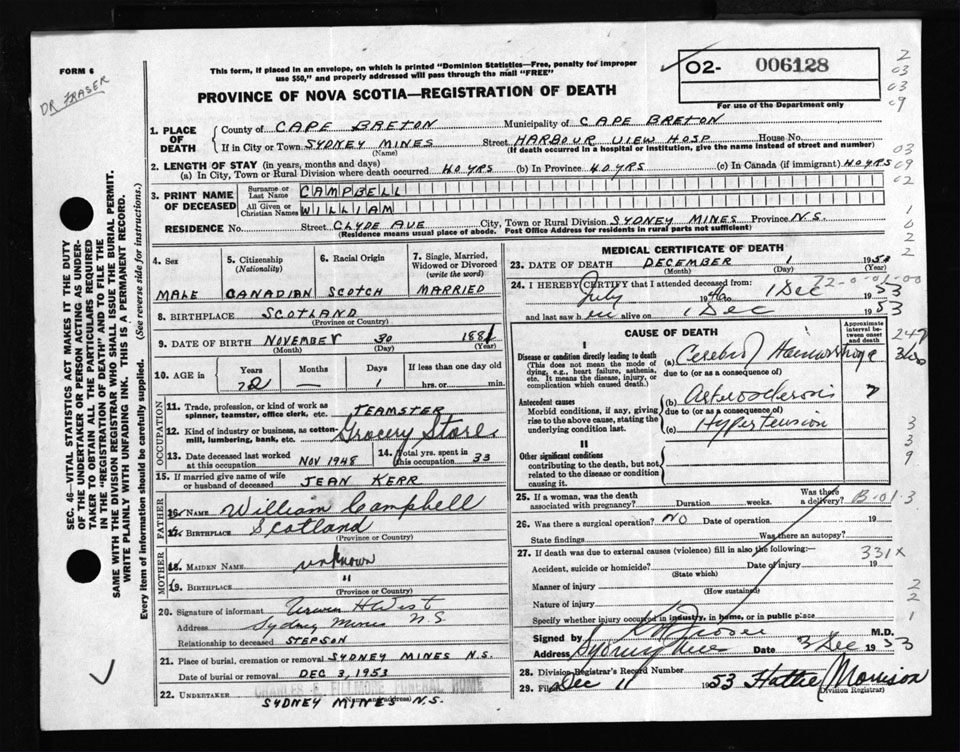 FORM 6
DR FRASER
This form, if placed in an envelope, on which is printed "Dominion Statistics—Free, penalty for improper
use $50," and properly addressed will pass through the mail "FREE"
PROVINCE OF NOVA SCOTIA—REGISTRATION OF DEATH
O2- 006128
For use of the Department only
SEC. 46—VITAL STATISTICS ACT MAKES IT THE DUTY
OF THE UNDERTAKER OR PERSON ACTING AS UNDER-
TAKER TO OBTAIN ALL THE PARTICULARS REQUIRED
IN THE "REGISTRATION OF DEATH" AND TO FILE THE
SAME WITH THE DIVISION REGISTRAR WHO SHALL ISSUE THE BURIAL PERMIT.
WRITE PLAINLY WITH UNFADING INK. THIS IS A PERMANENT RECORD.
Every item of information should be carefully supplied. (See reverse side for instructions.)
1. PLACE OF DEATH County of CAPE BRETON Municipality of CAPE BRETON
If in City or Town SYDNEY MINES Street HARBOUR VIEW HOSP House No.
(Name) (If death occurred in a hospital or institution, give the name instead of street and number)
2. LENGTH OF STAY (in years, months and days)
(a) In City, Town or Rural Division where death occurred 40 YRS (b) In Province 40 YRS (c) In Canada (if immigrant) 40 YRS
3. PRINT NAME OF DECEASED Surname or Last Name CAMPBELL
All Given or Christian Names WILLIAM
RESIDENCE No. Street CLYDE AVE City, Town or Rural Division SYDNEY MINES Province N.S.
(Residence means usual place of abode. Post Office Address for residents in rural parts not sufficient)
4. Sex 5. Citizenship (Nationality) 6. Racial Origin 7. Single, Married, Widowed or Divorced (write the word)
MALE CANADIAN SCOTCH MARRIED
8. BIRTHPLACE SCOTLAND
(Province or Country)
9. DATE OF BIRTH NOVEMBER 30 1881
(Month) (Day) (Year)
10. AGE in Years Months Days If less than one day old
72 — 1 hrs. or min.
OCCUPATION
11. Trade, profession, or kind of work as spinner, teamster, office clerk, etc. TEAMSTER
12. Kind of industry or business, as cotton-mill, lumbering, bank, etc. Grocery Store
13. Date deceased last worked at this occupation NOV 1948 14. Total yrs. spent in this occupation 33
15. If married give name of wife or husband of deceased JEAN KERR
FATHER
16. Name William Campbell
17. Birthplace Scotland
(Province or Country)
MOTHER
18. Maiden Name unknown
19. Birthplace "
(Province or Country)
20. Signature of informant
Address Sydney Mines N.S
Relationship to deceased STEPSON
21. Place of burial, cremation or removal SYDNEY MINES N.S.
Date of burial or removal DEC 3, 1953
22. UNDERTAKER CHARLES FUNERAL HOME
(Name and address)
SYDNEY MINES N.S.
MEDICAL CERTIFICATE OF DEATH
23. DATE OF DEATH DECEMBER 1 1953
(Month) (Day) (Year)
24. I HEREBY CERTIFY that I attended deceased from:
July to 1 Dec 53
and last saw h im alive on 1 Dec 1953
CAUSE OF DEATH
Approximate interval between onset and death
I
Disease or condition directly leading to death
(This does not mean the mode of dying, e.g., heart failure, asthenia, etc. It means the disease, injury, or complication which caused death.)
(a) Cerebral Hemorrhage
due to (or as a consequence of)
Antecedent causes
Morbid conditions, if any, giving rise to the above cause, stating the underlying condition last.
(b) Arteriosclerosis ?
due to (or as a consequence of)
(c) Hypertension
II
Other significant conditions
contributing to the death, but not related to the disease or condition causing it.
25. If a woman, was the death associated with pregnancy? Duration weeks. Was there a delivery?
26. Was there a surgical operation? NO Date of operation 19
State findings Was there an autopsy?
27. If death was due to external causes (violence) fill in also the following:—
331X
Accident, suicide or homicide? Date of injury 19
(State which)
Manner of injury (How sustained)
Nature of injury
Specify whether injury occurred in industry, in home, or in public place
Signed by M.D.
Address Sydney Mines Date 3 Dec 1953
28. Division Registrar's Record Number
29. Filed Dec 11 1953 Hattie Morrison
(Division Registrar)